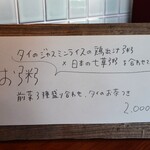 タイのジャスミンライスの鶏出汁粥
×日本の七草粥を合わせた
お粥
前菜3種盛り合わせ、タイのお茶つき
2,000